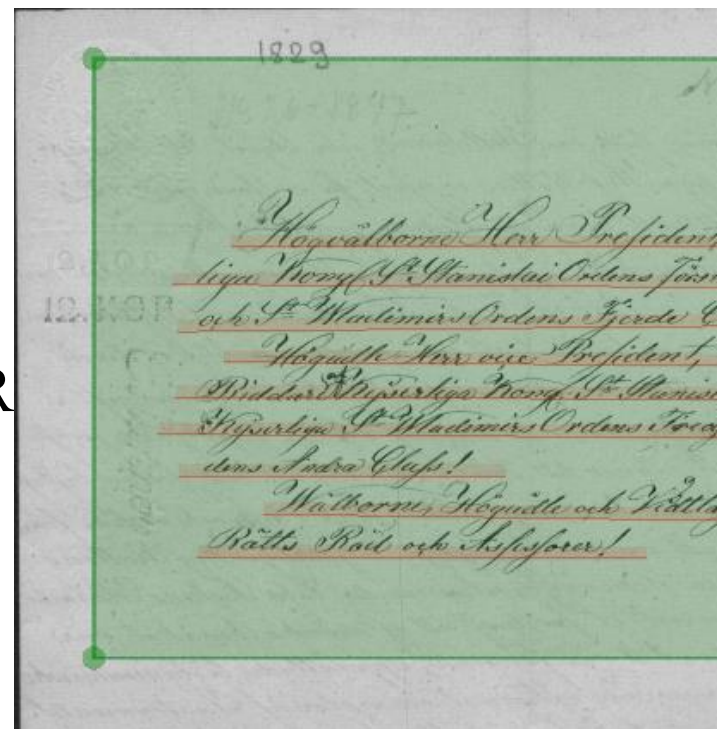 1829
Högvälborne Herr President,
liga Kongl. St. Stanislai Ordens förs
och St. Wladimirs Ordens Fjerde C
Högädle Herr vice President,
Riddare af Kejserliga Kongl. St. Stanis
Kejserliga St. Wladimirs Ordens
dens Andra Class!
Wälborne, Högädle och
R
Rätts Råd och Assessorer!